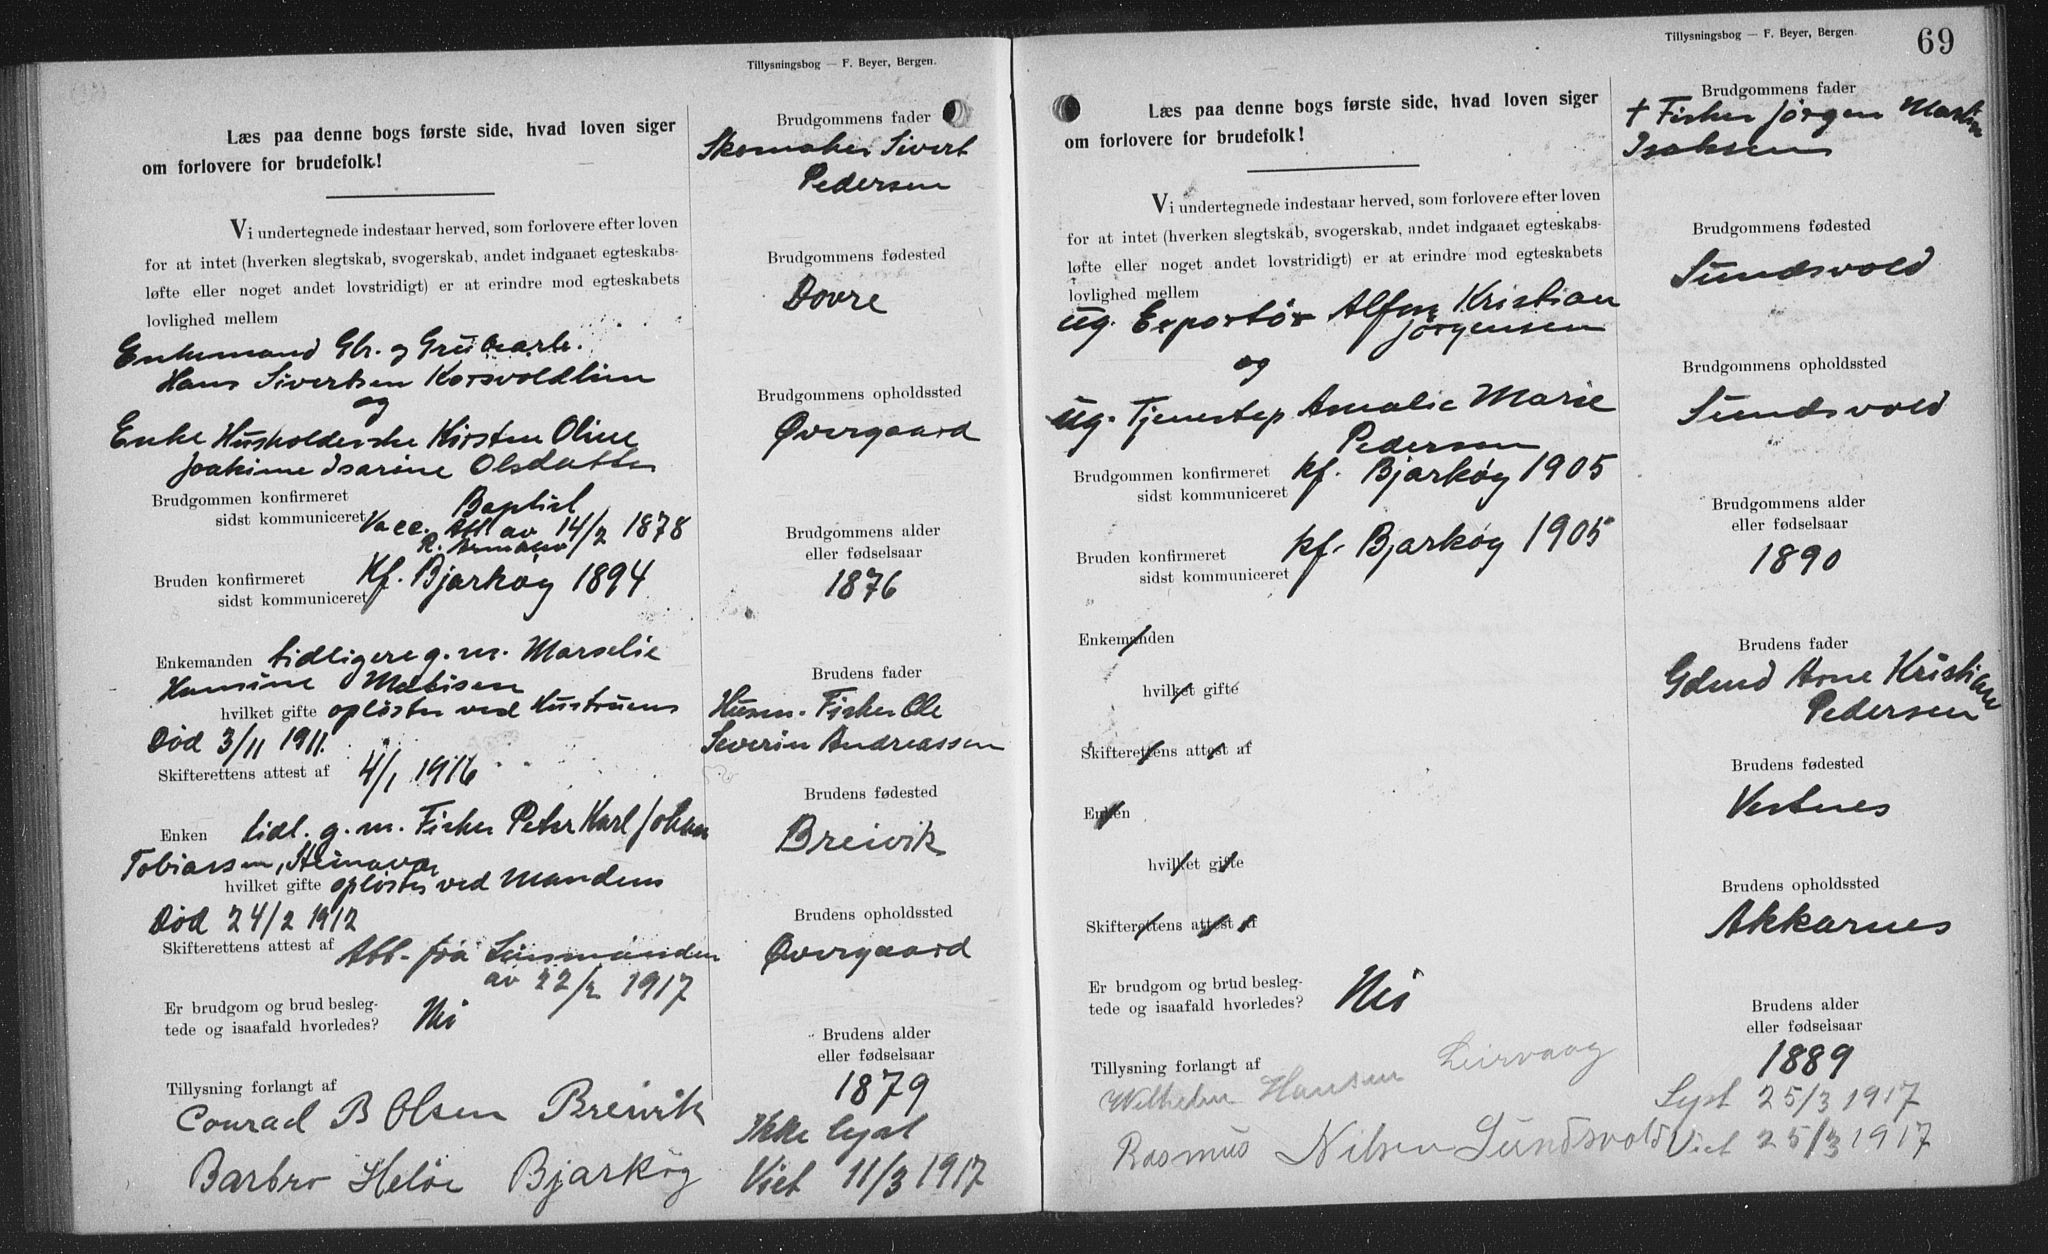 Tillysningsbog — F. Beyer, Bergen.
Læs paa denne bogs første side, hvad loven siger
om forlovere for brudefolk!
Vi undertegnede indestaar herved, som forlovere efter loven
for at intet (hverken slegtskab, svogerskab, andet indgaaet egteskabs-
løfte eller noget andet lovstridigt) er at erindre mod egteskabets
lovlighed mellem
Enkemand Gbr. og Grubearb.
Hans Sivertsen Korsvoldlien
og
Enke Husholderske Kirsten Oline
Joakime Isarine Olsdatter
Brudgommen konfirmeret Baptist
sidst kommuniceret Vacc. Att av 14/2 1878
Bruden konfirmeret Kf. Bjarkøy 1894
sidst kommuniceret
Enkemanden tidligere g. m. Marselie
Hansine Matisen
hvilket gifte opløstes ved Hustruens
Død 3/11 1911.
Skifterettens attest af 4/1 1916
Enken tidl. g. m. Fisker Peter Karl Johan
Tobiassen, Steinavær
hvilket gifte opløstes ved Mandens
Død 24/2 1912
Skifterettens attest af Att. fra Lensmanden
av 22/2 1917
Er brudgom og brud besleg-
tede og isaafald hvorledes? Nei
Tillysning forlangt af
Conrad B Olsen Breivik
Barbro Heløe Bjarkøy
Brudgommens fader
Skomaker Sivert
Pedersen
Brudgommens fødested
Dovre
Brudgommens opholdssted
Øvergaard
Brudgommens alder
eller fødselsaar
1876
Brudens fader
Husm. Fisker Ole
Severin Andreassen
Brudens fødested
Breivik
Brudens opholdssted
Øvergaard
Brudens alder
eller fødselsaar
1879
Ikke lyst
Viet 11/3 1917
Tillysningsbog — F. Beyer, Bergen.
69
Læs paa denne bogs første side, hvad loven siger
om forlovere for brudefolk!
Vi undertegnede indestaar herved, som forlovere efter loven
for at intet (hverken slegtskab, svogerskab, andet indgaaet egteskabs-
løfte eller noget andet lovstridigt) er at erindre mod egteskabets
lovlighed mellem
Ug. Exportør Alfon Kristian
Jørgensen
og
Ug. Tjenestep Amalie Marie
Pedersen
Brudgommen konfirmeret kf. Bjarkøy 1905
sidst kommuniceret
Bruden konfirmeret kf. Bjarkøy 1905
sidst kommuniceret
Enkemanden
hvilket gifte
Skifterettens attest af
Enken
hvilket gifte
Skifterettens attest af
Er brudgom og brud besleg-
tede og isaafald hvorledes? Nei
Tillysning forlangt af
Wilhelm Hansen Leirvaag
Rasmus Nilsen Sundsvold
Brudgommens fader
† Fisker Jørgen Martin
Isaksen
Brudgommens fødested
Sundsvold
Brudgommens opholdssted
Sundsvold
Brudgommens alder
eller fødselsaar
1890
Brudens fader
Gdmd Arne Kristian
Pedersen
Brudens fødested
Vestnes
Brudens opholdssted
Akkarnes
Brudens alder
eller fødselsaar
1889
Lyst 25/3 1917
Viet 25/3 1917